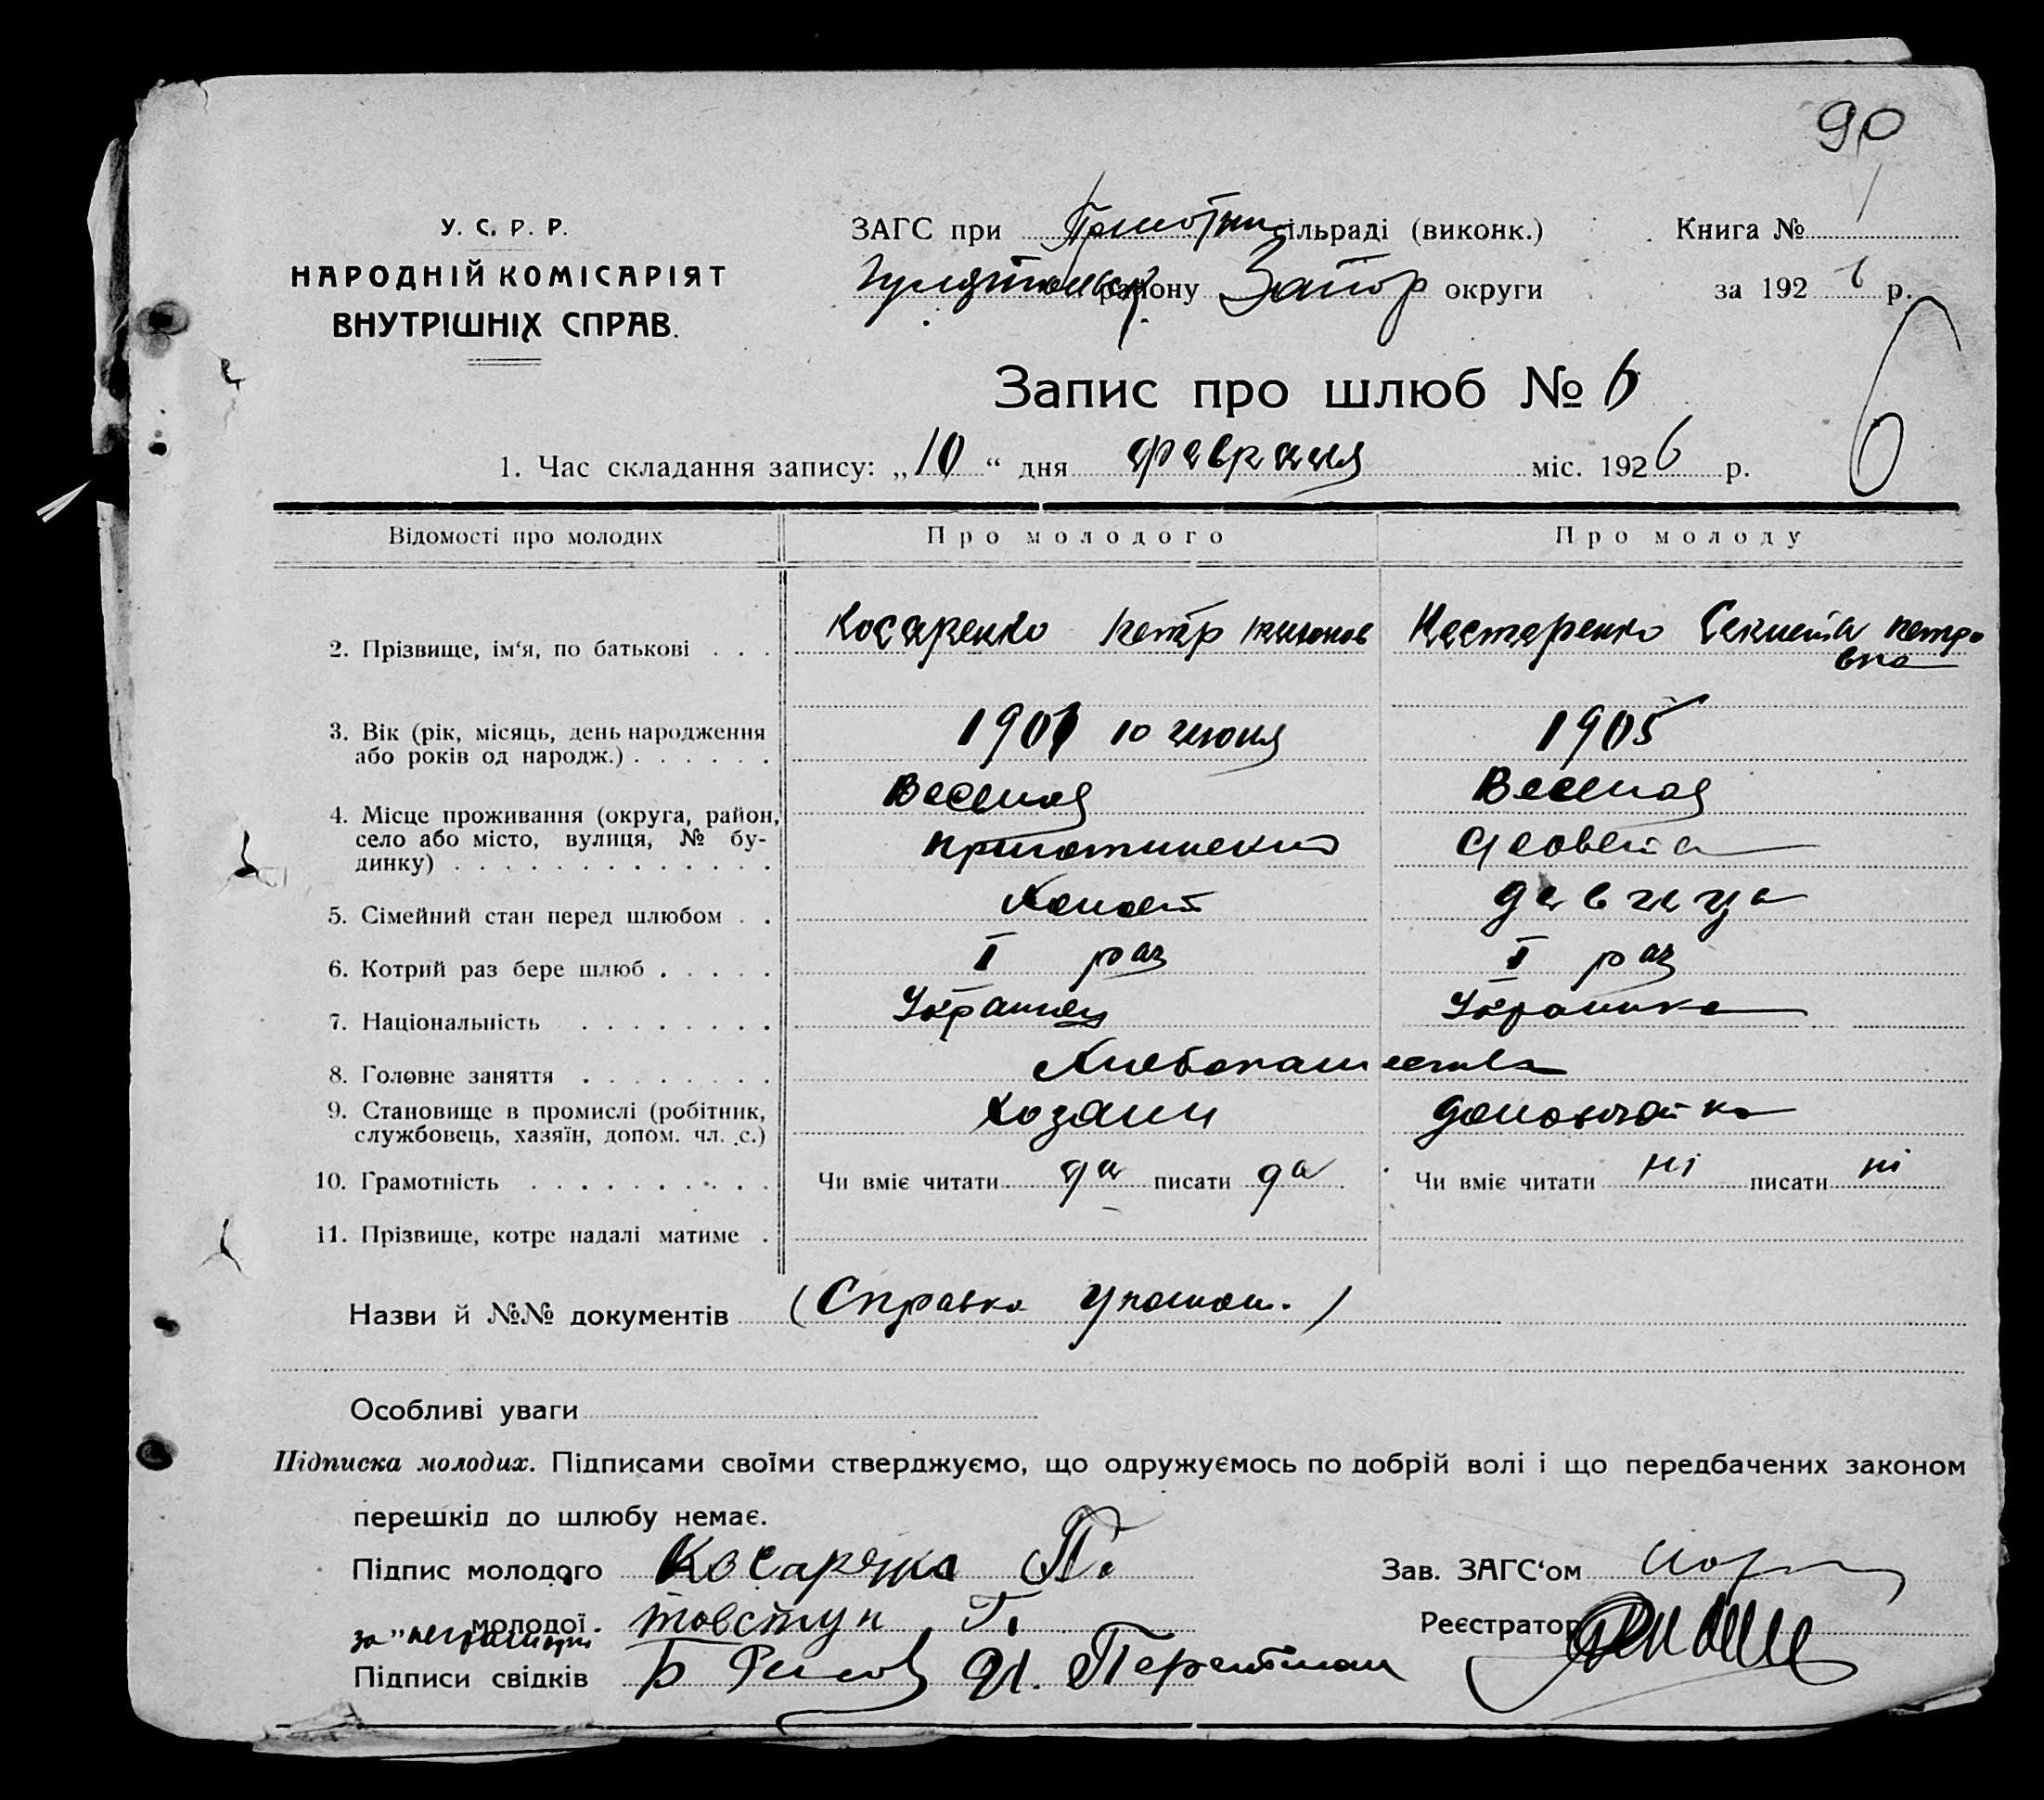 90
У. С. Р. Р.
НАРОДНІЙ КОМІСАРІЯТ
ВНУТРІШНІХ СПРАВ.
ЗАГС при сільраді (виконк.) Книга № 1
району Запор округи за 1926 р.
Запис про шлюб № 6
6
1. Час складання запису: „10“ дня февраля міс. 1926 р.
Відомості про молодих Про молодого Про молоду
2. Прізвище, ім‘я, по батькові . . . Косаренко Петр Нестеренко Петро
вна
3. Вік (рік, місяць, день народження 1901 10 июня 1905
або років од народж.) . . . . . .
4. Місце проживання (округа, район, Веселая Веселая
село або місто, вулиця, № бу- сельсовета
динку) . . . . . . . . . . . . .
5. Сімейний стан перед шлюбом . . Холост девица
6. Котрий раз бере шлюб . . . . . I раз I раз
7. Національність . . . . . . . . Украинец Украинка
8. Головне заняття . . . . . . . . Хлебопашество
9. Становище в промислі (робітник, Хозяин домохозяйка
службовець, хазяїн, допом. чл. с.)
10. Грамотність . . . . . . . . . . Чи вміє читати да писати да Чи вміє читати ні писати ні
11. Прізвище, котре надалі матиме .
Назви й №№ документів (Справка )
Особливі уваги
Підписка молодих. Підписами своїми стверджуємо, що одружуємось по добрій волі і що передбачених законом
перешкід до шлюбу немає.
Підпис молодого Косаренко П. Зав. ЗАГС‘ом
„ молодої Товстун Г. Реєстратор
за неграмотн
Підписи свідків Б